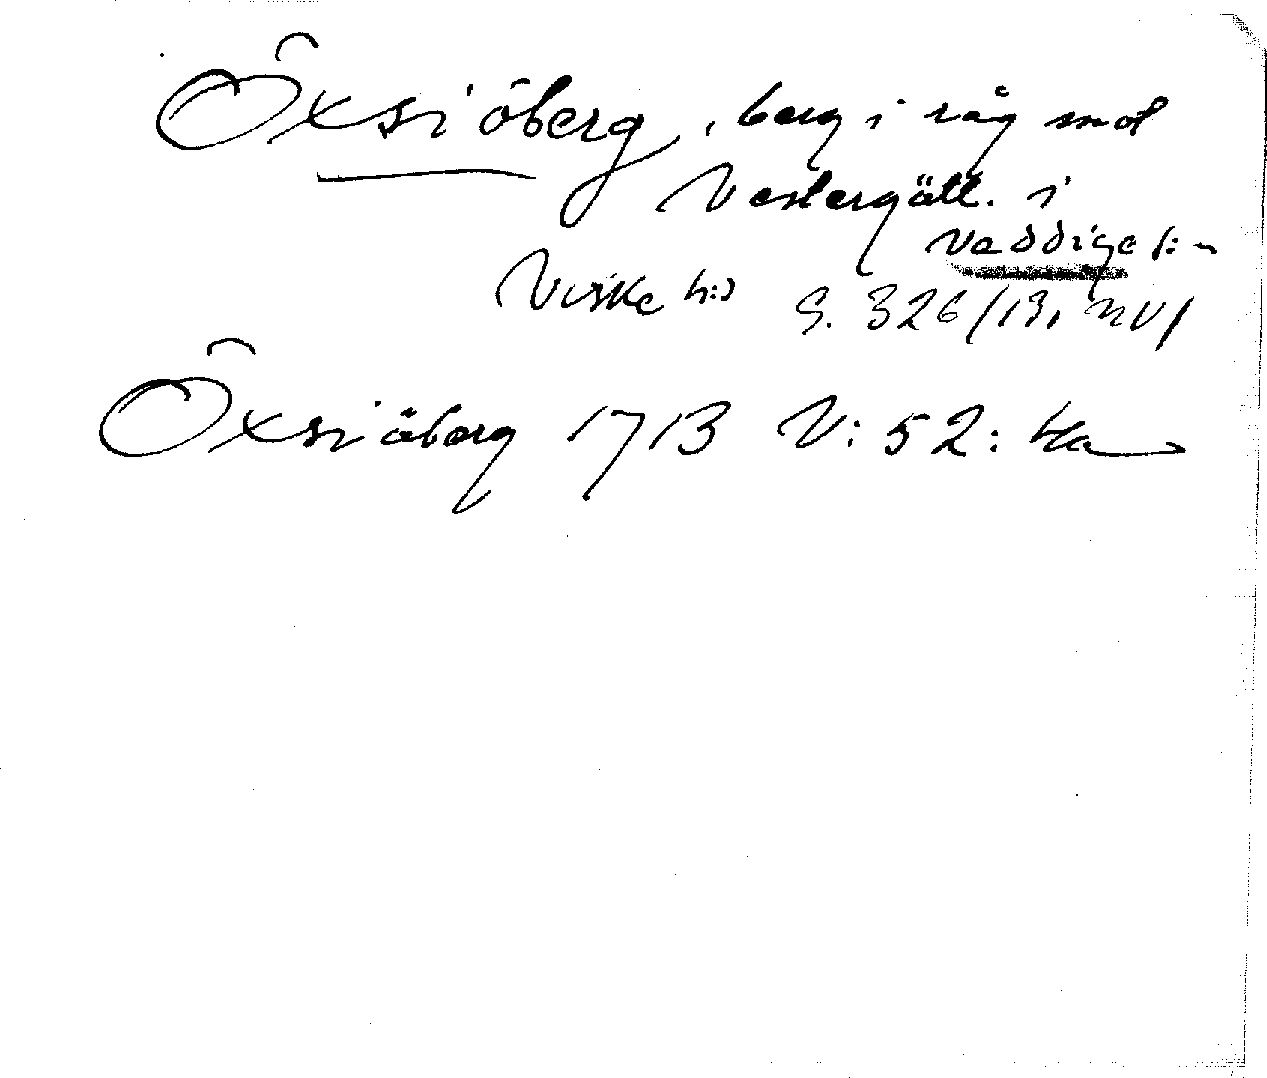 Öxsiöberg, berg i råg mot
Vestergötl. i
Veddige s:n
Viske h:d S. 326/13, NV/
Öxsiöberg 1713 V: 52: 4a